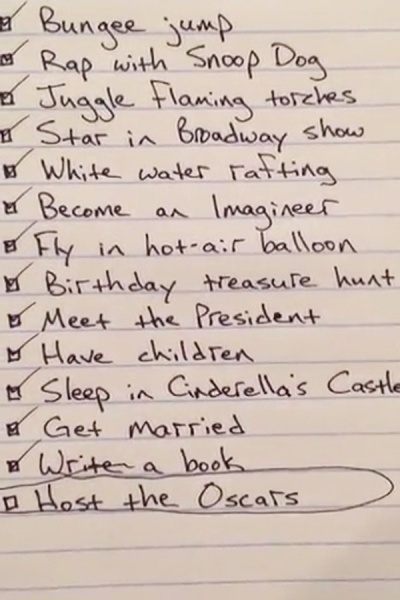 Bungee jump
Rap with Snoop Dog
Juggle flaming torches
Star in Broadway show
White water rafting
Become an Imagineer
Fly in hot-air balloon
Birthday treasure hunt
Meet the President
Have children
Sleep in Cinderella's Castle
Get Married
Write a book
Host the Oscars